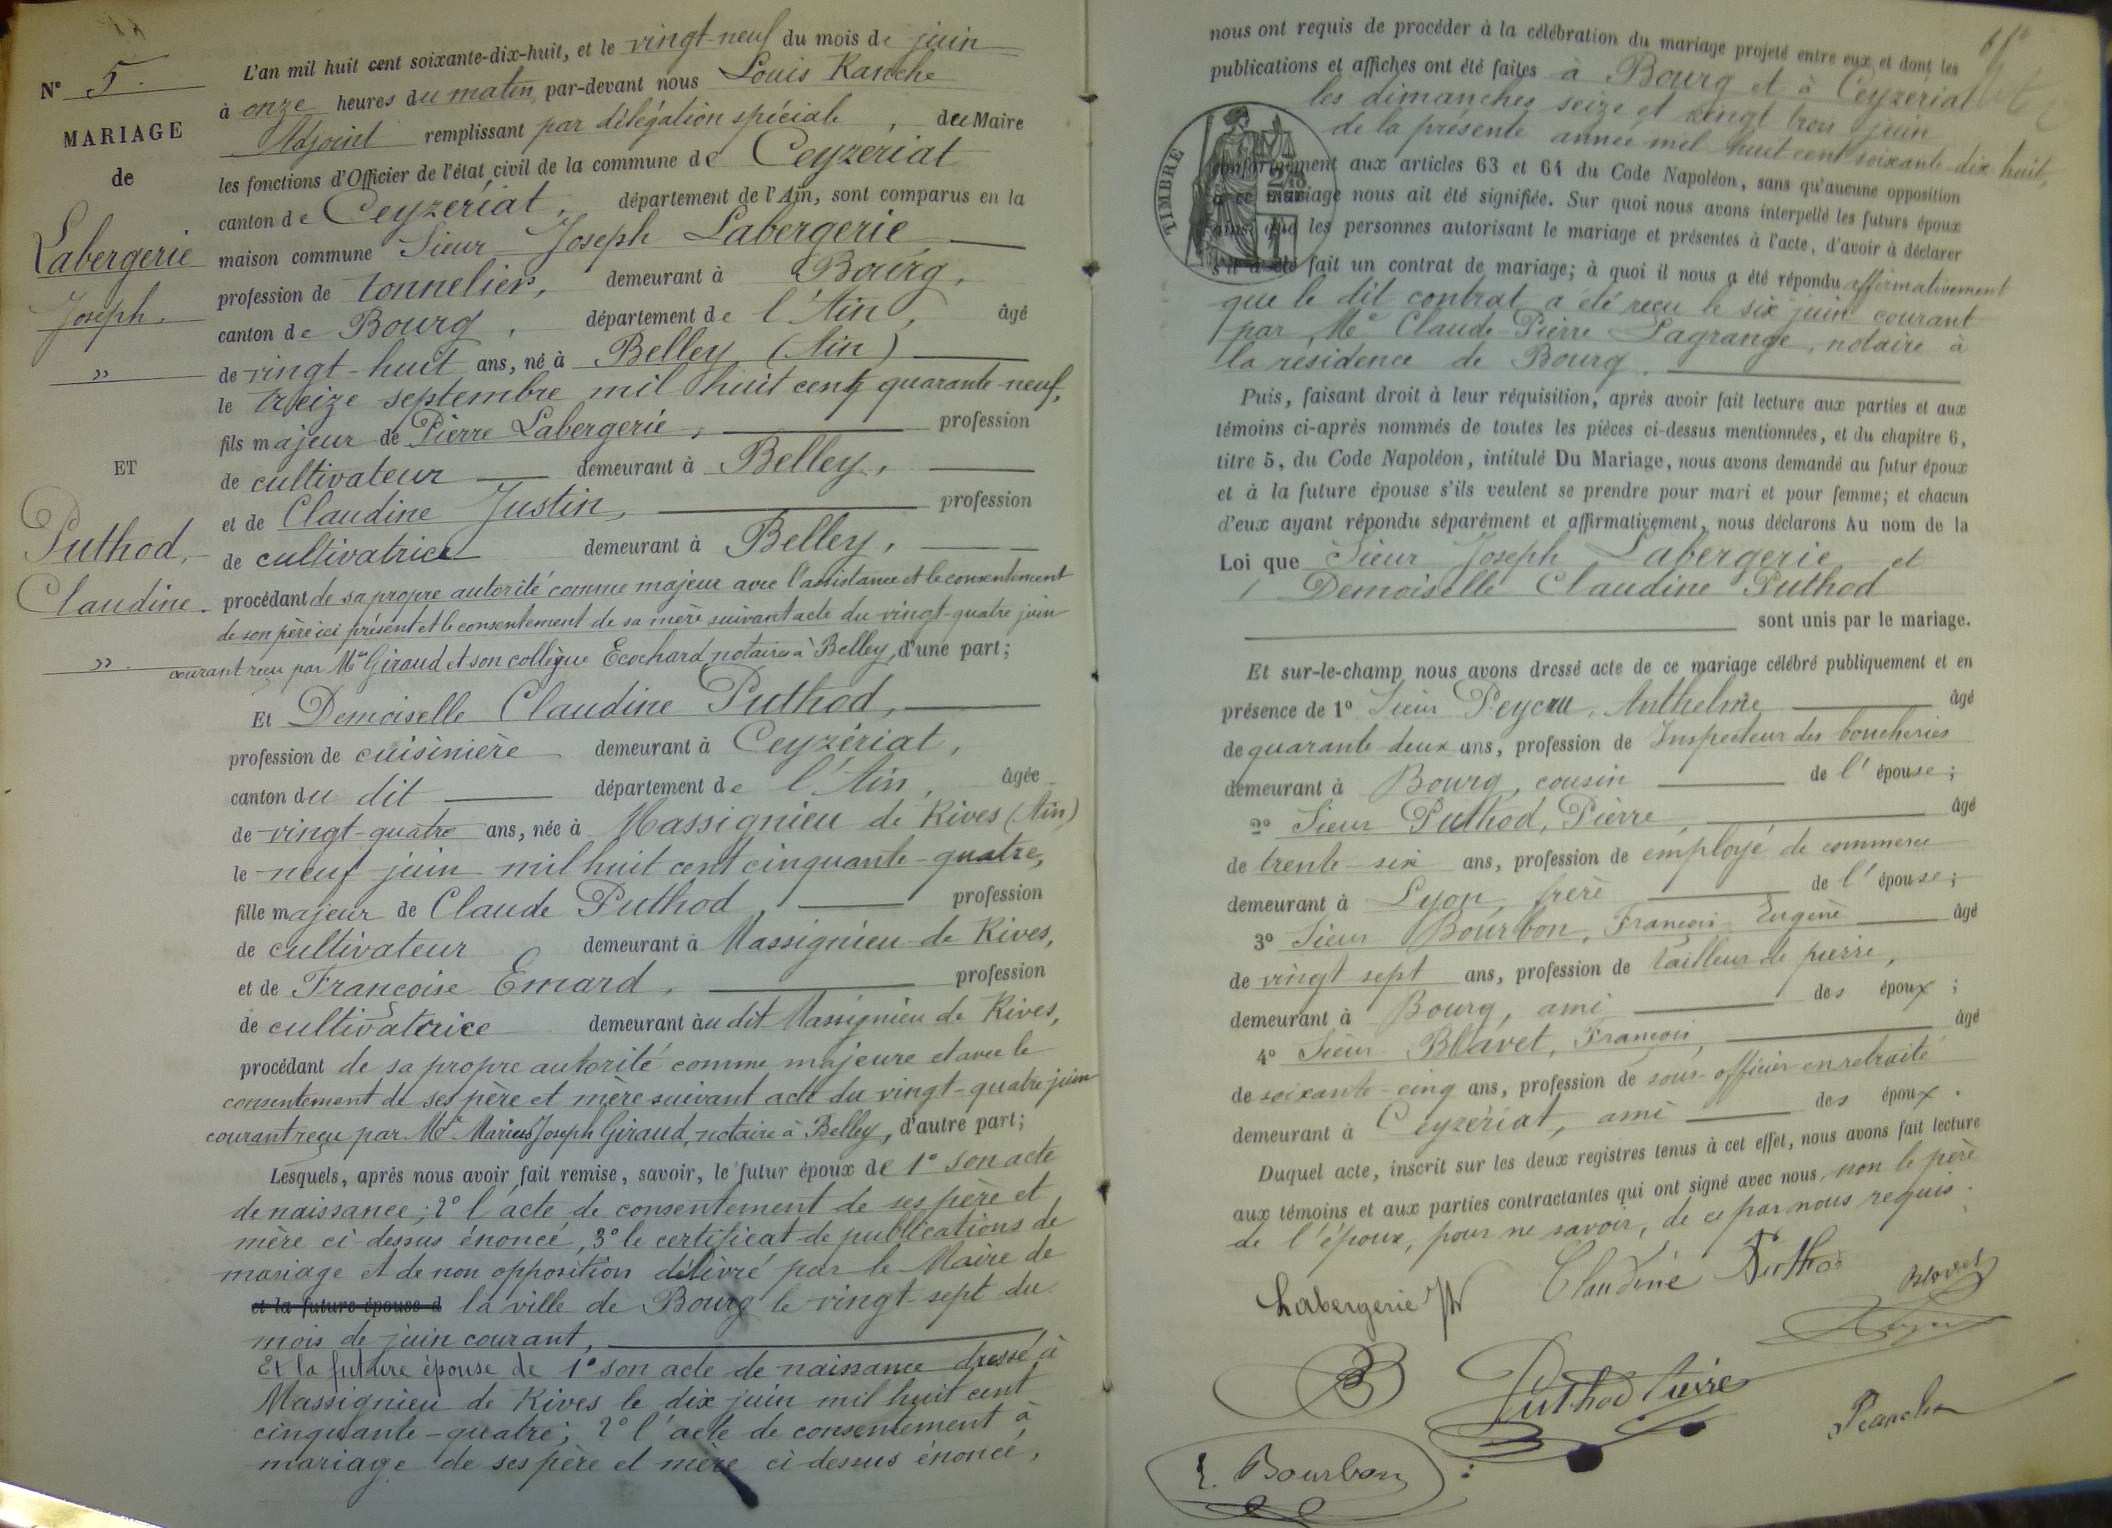 L'an mil huit cent soixante-dix-huit, et le vingt-neuf du mois de juin
à onze heures du matin par-devant nous Louis Ranche
Adjoint remplissant par délégation spéciale, du Maire
les fonctions d'Officier de l'état civil de la commune de Ceyzeriat
canton de Ceyzériat, département de l'Ain, sont comparus en la
maison commune Sieur Joseph Labergerie
profession de tonnelier, demeurant à Bourg,
canton de Bourg, département de l'Ain, âgé
de vingt-huit ans, né à Belley (Ain)
le treize septembre mil huit cent quarante-neuf,
fils majeur de Pierre Labergerie, profession
de cultivateur demeurant à Belley,
et de Claudine Justin, profession
de cultivatrice demeurant à Belley,
procédant de sa propre autorité comme majeur avec l'assistance et le consentement
de son père ici présent et le consentement de sa mère suivant acte du vingt-quatre juin
courant reçu par Me Giraud et son collègue Ecochard notaires à Belley, d'une part;
Et Demoiselle Claudine Puthod,
profession de cuisinière demeurant à Ceyzériat,
canton du dit département de l'Ain, âgée
de vingt-quatre ans, née à Massignieu de Rives (Ain)
le neuf juin mil huit cent cinquante-quatre,
fille majeur de Claude Puthod, profession
de cultivateur demeurant à Massignieu de Rives,
et de Françoise Emard, profession
de cultivatrice demeurant au dit Massignieu de Rives,
procédant de sa propre autorité comme majeure et avec le
consentement de ses père et mère suivant acte du vingt-quatre juin
courant reçu par Me Marius Joseph Giraud, notaire à Belley, d'autre part;
Lesquels, après nous avoir fait remise, savoir, le futur époux de 1° son acte
de naissance; 2° l'acte de consentement de ses père et
mère ci dessus énoncé, 3° le certificat de publications de
mariage et de non opposition délivré par le Maire de
et la future épouse d la ville de Bourg le vingt-sept du
mois de juin courant,
Et la future épouse de 1° son acte de naissance dressé à
Massignieu de Rives le dix juin mil huit cent
cinquante-quatre; 2° l'acte de consentement à
mariage de ses père et mère ci dessus énoncé,
N° 5.
MARIAGE
de
Labergerie
Joseph.
"
ET
Puthod,
Claudine.
"
nous ont requis de procéder à la célébration du mariage projeté entre eux et dont les
publications et affiches ont été faites à Bourg et à Ceyzeriat
les dimanches seize et vingt trois juin
de la présente année mil huit cent soixante-dix huit,
conformément aux articles 63 et 64 du Code Napoléon, sans qu'aucune opposition
à ce mariage nous ait été signifiée. Sur quoi nous avons interpellé les futurs époux
ainsi que les personnes autorisant le mariage et présentes à l'acte, d'avoir à déclarer
s'il a été fait un contrat de mariage; à quoi il nous a été répondu affirmativement
que le dit contrat a été reçu le six juin courant
par Me Claude Pierre Lagrange, notaire à
la résidence de Bourg.
Puis, faisant droit à leur réquisition, après avoir fait lecture aux parties et aux
témoins ci-après nommés de toutes les pièces ci-dessus mentionnées, et du chapitre 6,
titre 5, du Code Napoléon, intitulé Du Mariage, nous avons demandé au futur époux
et à la future épouse s'ils veulent se prendre pour mari et pour femme; et chacun
d'eux ayant répondu séparément et affirmativement, nous déclarons Au nom de la
Loi que Sieur Joseph Labergerie et
Demoiselle Claudine Puthod
sont unis par le mariage.
Et sur-le-champ nous avons dressé acte de ce mariage célébré publiquement et en
présence de 1° Sieur Peycru, Anthelme âgé
de quarante deux ans, profession de Inspecteur des boucheries
demeurant à Bourg, cousin de l'épouse;
2° Sieur Puthod, Pierre, âgé
de trente-six ans, profession de employé de commerce
demeurant à Lyon, frère de l'épouse;
3° Sieur Bourbon, François Eugène âgé
de vingt sept ans, profession de tailleur de pierre,
demeurant à Bourg, ami des époux;
4° Sieur Blavet, François, âgé
de soixante-cinq ans, profession de sous-officier en retraite
demeurant à Ceyzériat, ami des époux.
Duquel acte, inscrit sur les deux registres tenus à cet effet, nous avons fait lecture
aux témoins et aux parties contractantes qui ont signé avec nous, non le père
de l'époux, pour ne savoir, de ce par nous requis.
TIMBRE
Labergerie
Claudine Puthod
Blavet
Puthod Pierre
Ranche
E. Bourbon